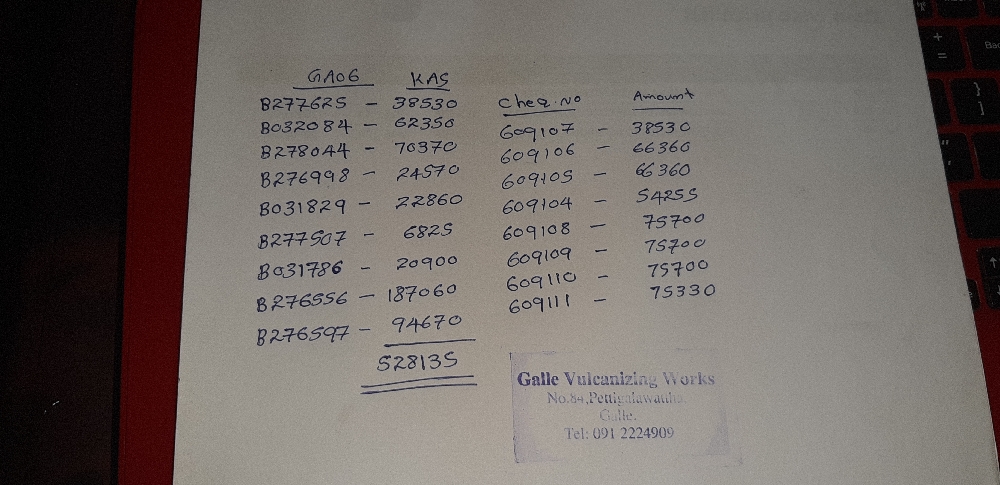 GA06 KAS
B277625 - 38530
B032084 - 62350
B278044 - 70370
B276998 - 24570
B031829 - 22860
B277507 - 6825
B031786 - 20900
B276556 - 187060
B276597 - 94670
528135
Cheq.No Amount
609107 - 38530
609106 - 66360
609105 - 66360
609104 - 54255
609108 - 75700
609109 - 75700
609110 - 75700
609111 - 75330
Galle Vulcanizing Works
No.84,
Galle.
Tel: 091 2224909
+
=
}
]